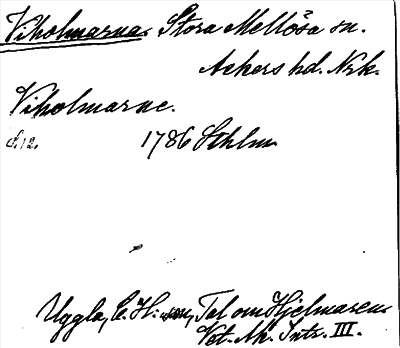 Viholmarna. Stora Mellösa sn.
Askers hd. Nrk.
Viholmarne.
S. 12. 1786 Sthlm
Uggla, C. H:son, Tal om Hjelmaren.
Vet. Ak. Intr. III.